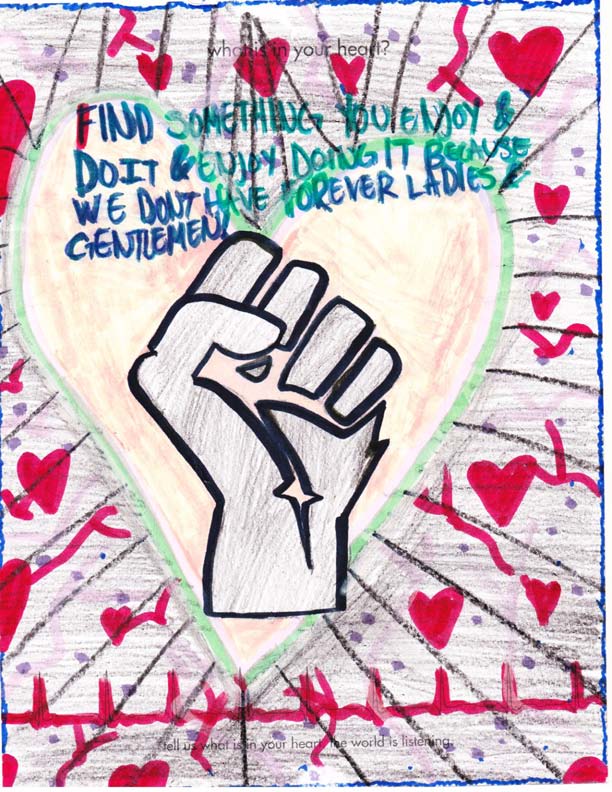 what is in your heart?
FIND SOMETHING YOU ENJOY &
DO IT & ENJOY DOING IT BECAUSE
WE DONT HAVE FOREVER LADIES &
GENTLEMEN!
tell us what is in your heart. the world is listening.